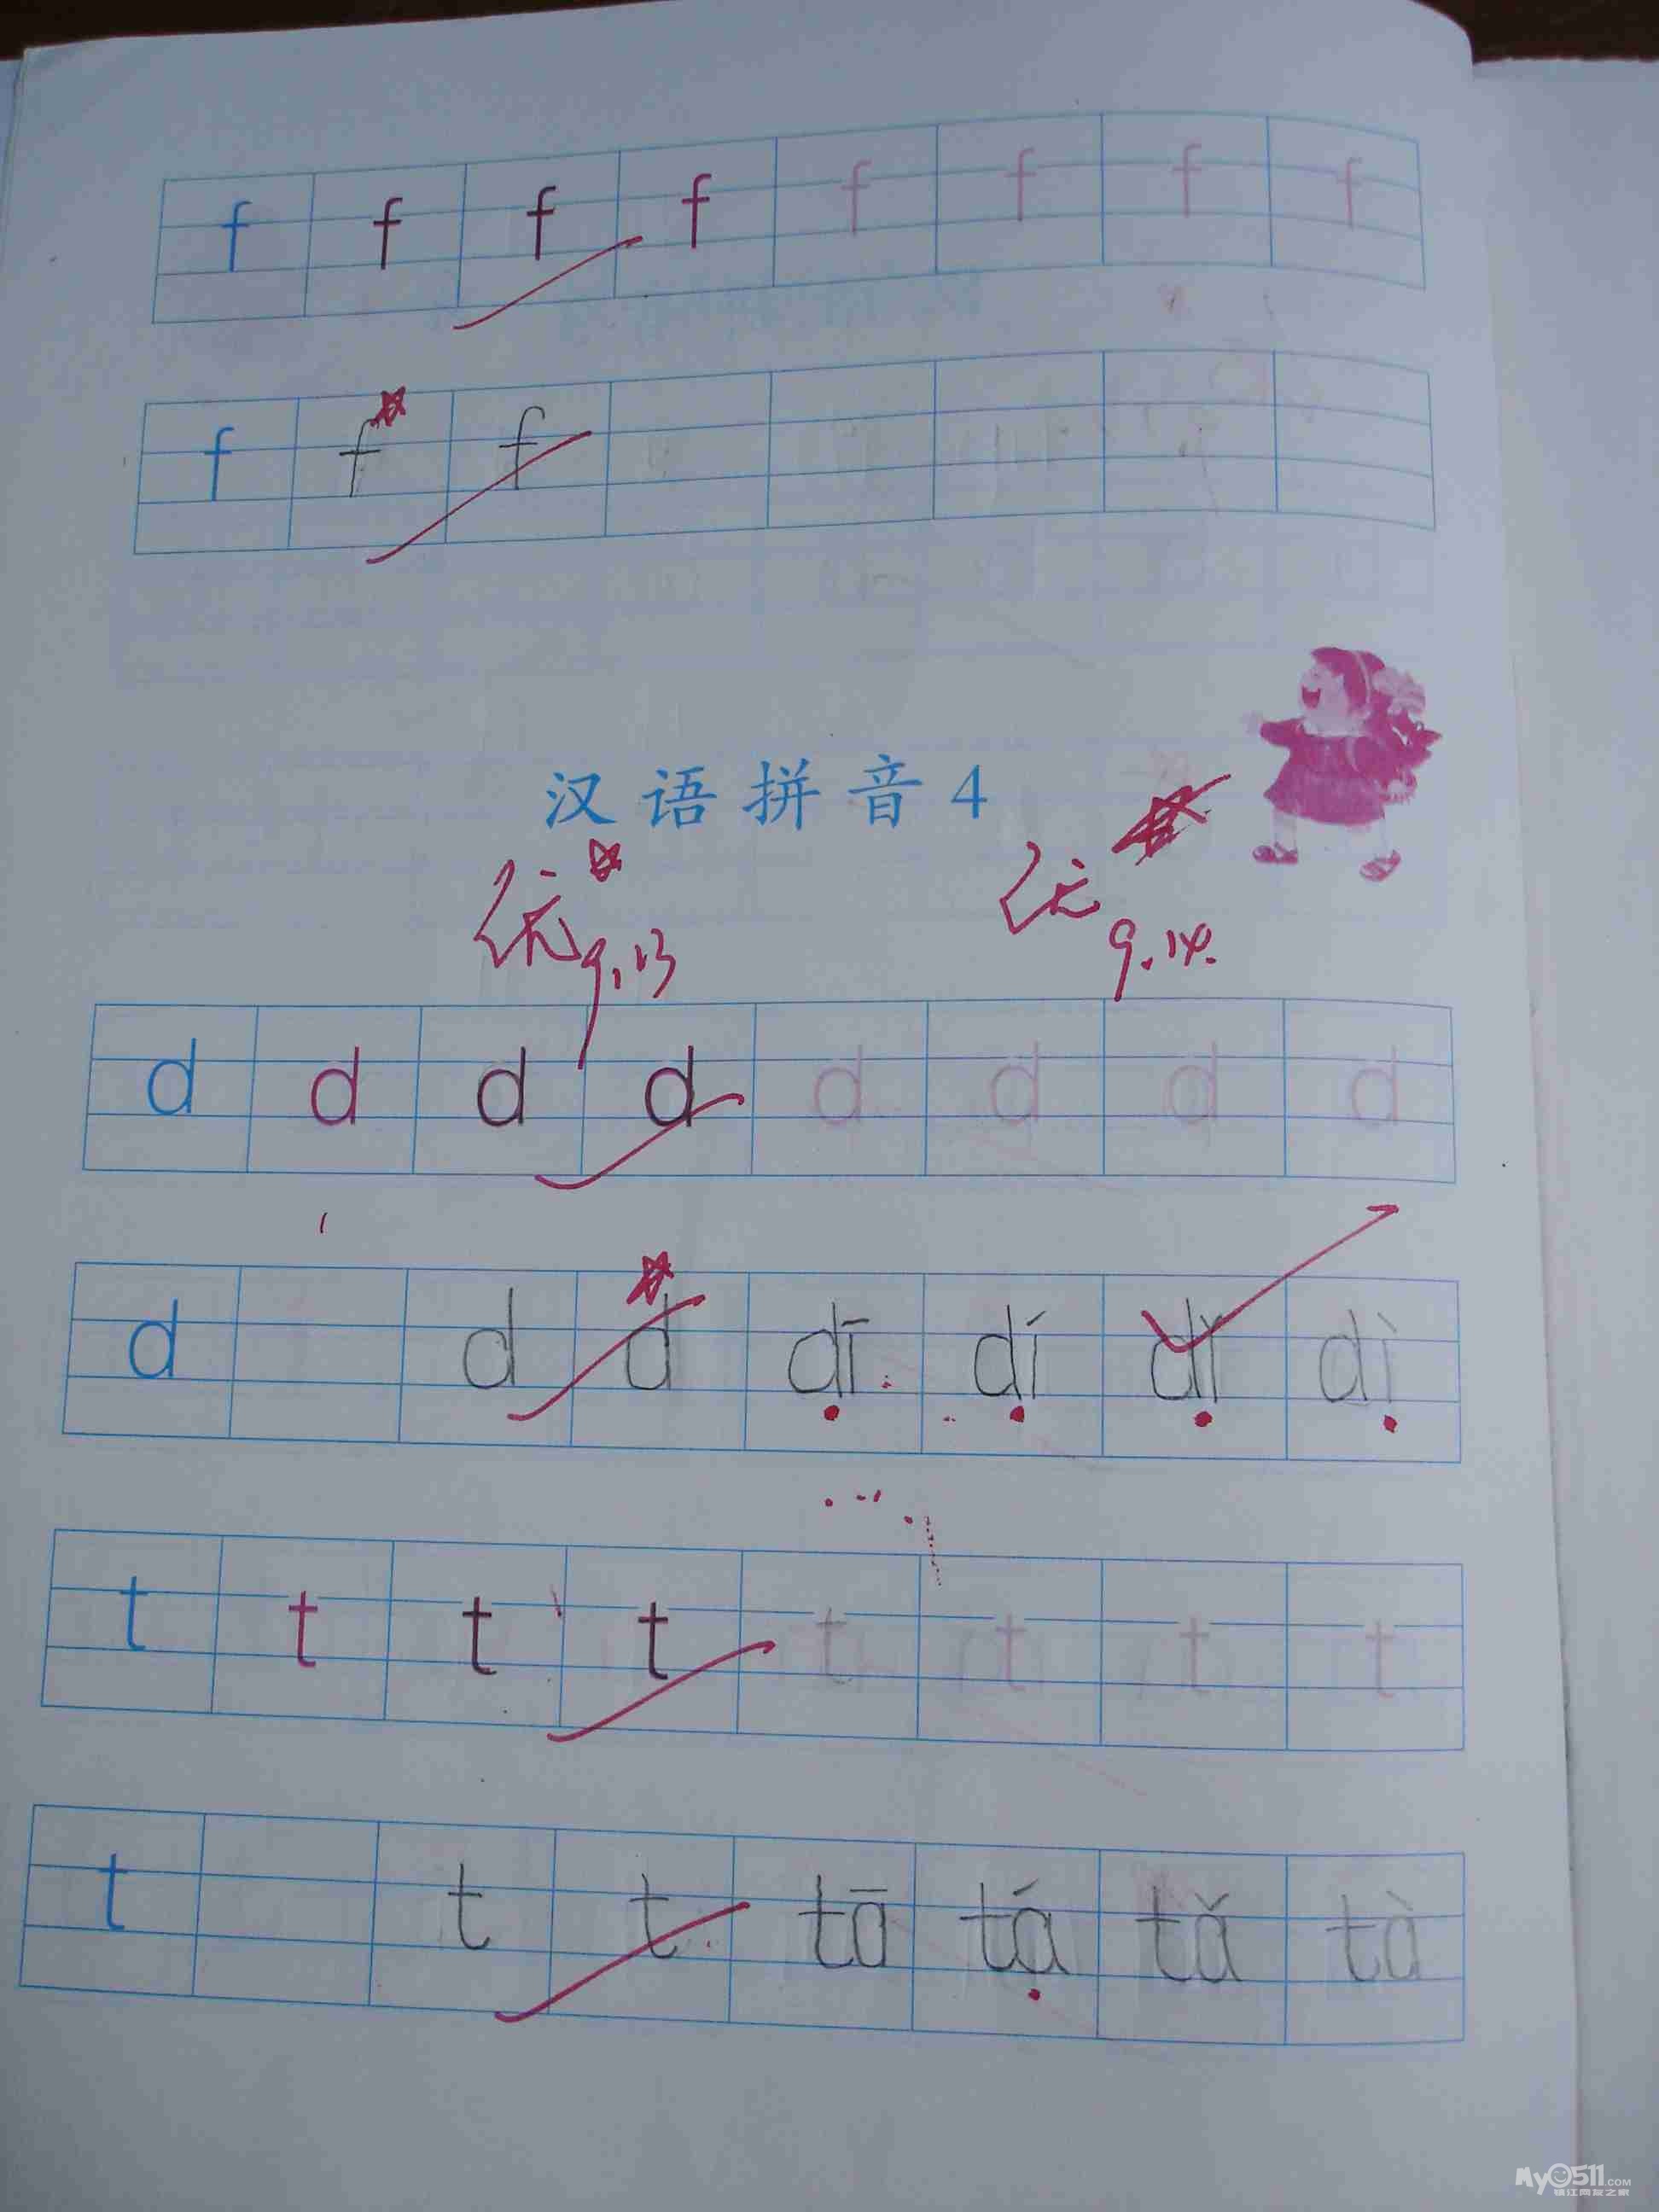 f f f f f f f f
f f f
汉语拼音4
优 优
9.13 9.14.
d d d d d d d d
d d d dī dí dǐ dì
t t t t t t t t
t t t tā tá tǎ tà
My0511.COM
镇江网友之家